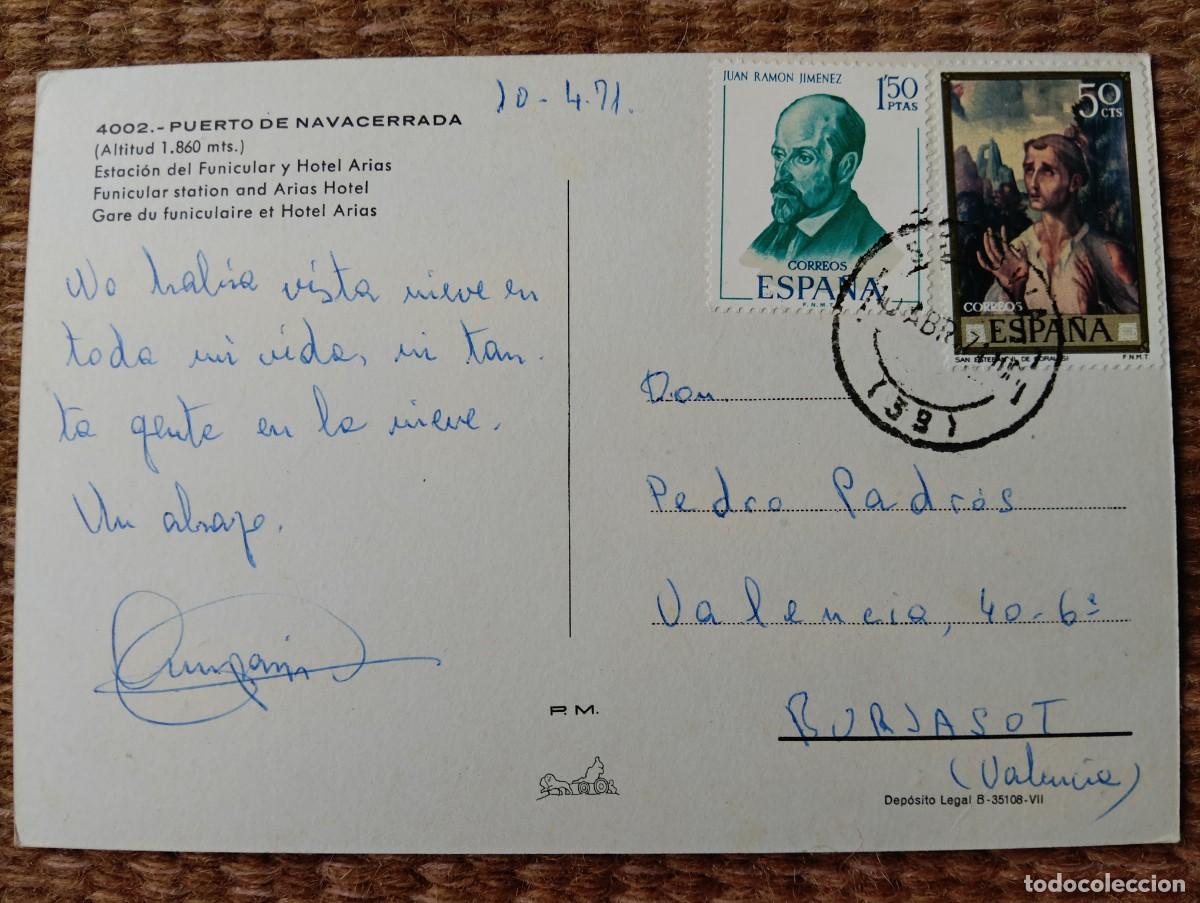 10-4.71.
4002.-PUERTO DE NAVACERRADA
(Altitud 1.860 mts.)
Estación del Funicular y Hotel Arias
Funicular station and Arias Hotel
Gare du funiculaire et Hotel Arias
No había vista nieve en
toda mi vida, ni tan-
ta gente en la nieve.
Un abrazo.
P. M.
JUAN RAMON JIMENEZ
1'50
PTAS
CORREOS
ESPAÑA
F.N.M.T.
50
CTS
CORREOS
ESPAÑA
SAN ESTEBAN (L. DE MORALES)
F.N.M.T
10 ABR
(39)
Don,
Pedro Padrós
Valencia, 40-6ª
BURJASOT
(Valencia)
Depósito Legal B-35108-VII
todocoleccion